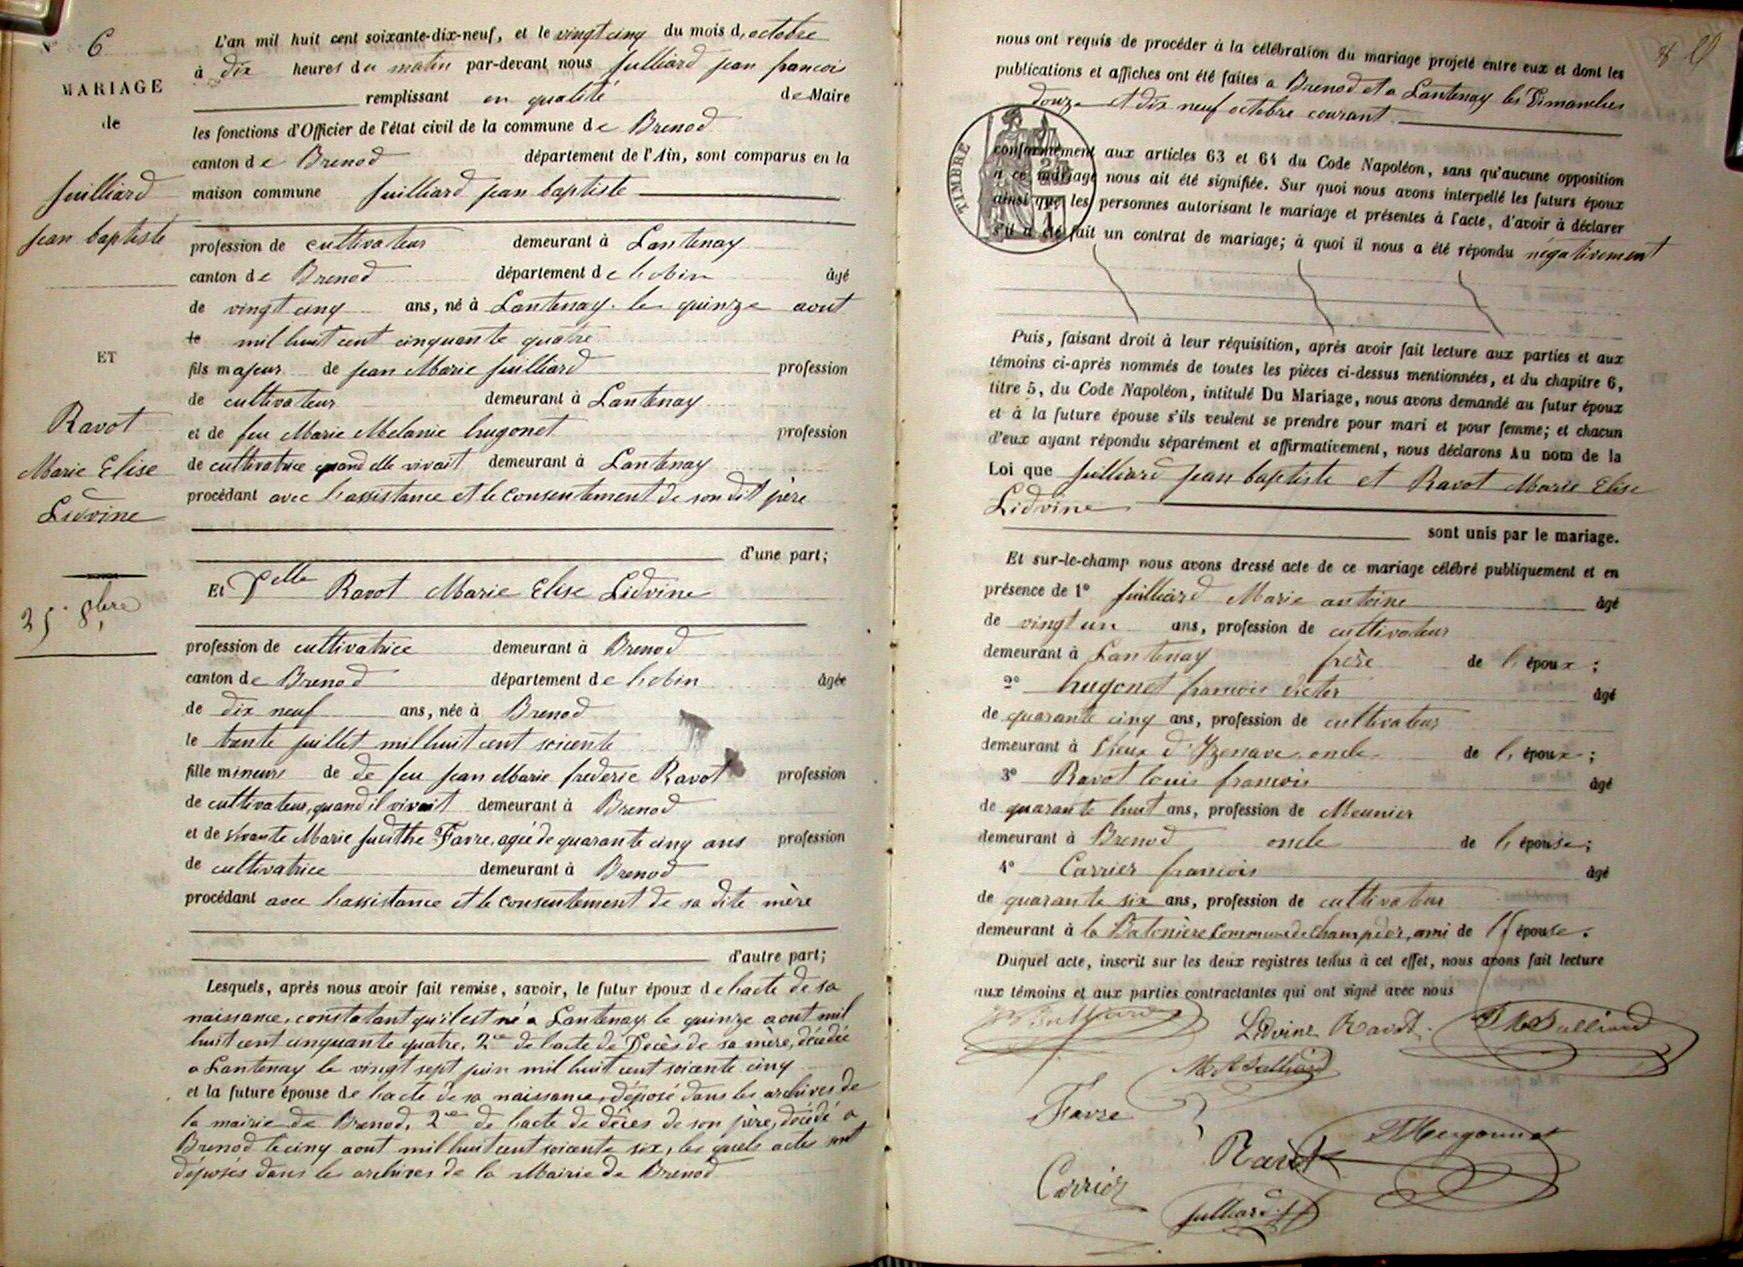 N° 6
MARIAGE
de
Juilliard
Jean baptiste
ET
Ravot
Marie Elise
Lidvine
25 8bre
L'an mil huit cent soixante-dix-neuf, et le vingt cinq du mois d'octobre
à dix heures du matin par-devant nous Julliard jean francois
remplissant en qualité de Maire
les fonctions d'Officier de l'état civil de la commune de Brenod
canton de Brenod département de l'Ain, sont comparus en la
maison commune Juilliard jean baptiste
profession de cultivateur demeurant à Lantenay
canton de Brenod département de l'ain âgé
de vingt cinq ans, né à Lantenay le quinze aout
le mil huit cent cinquante quatre
fils majeur de jean Marie Juilliard profession
de cultivateur demeurant à Lantenay
et de feu Marie Melanie hugonet profession
de cultivatrice quand elle vivait demeurant à Lantenay
procédant avec l'assistance et le consentement de son dit père
d'une part;
Et Delle Ravot Marie Elise Lidvine
profession de cultivatrice demeurant à Brenod
canton de Brenod département de l'ain âgée
de dix neuf ans, née à Brenod
le trente juillet mil huit cent soicente
fille mineure de de feu Jean Marie frederic Ravot profession
de cultivateur, quand il vivait demeurant à Brenod
et de vivante Marie Judithe Favre, agée de quarante cinq ans profession
de cultivatrice demeurant à Brenod
procédant avec l'assistance et le consentement de sa dite mère
d'autre part;
Lesquels, après nous avoir fait remise, savoir, le futur époux de l'acte de sa
naissance, constatant qu'il est né a Lantenay le quinze aout mil
huit cent cinquante quatre, 2 de l'acte de Décès de sa mère, décédée
a Lantenay le vingt sept juin mil huit cent soicente cinq
et la future épouse de l'acte de sa naissance, déposé dans les archives de
la mairie de Brenod, 2 de l'acte de décès de son père, décédé a
Brenod le cinq aout mil huit cent soicente six, les quels actes sont
déposés dans les archives de la Mairie de Brenod
nous ont requis de procéder à la célébration du mariage projeté entre eux et dont les
publications et affiches ont été faites a Brenod et a Lantenay les Dimanches
douze et dix neuf octobre courant
TIMBRE
conformément aux articles 63 et 64 du Code Napoléon, sans qu'aucune opposition
à ce mariage nous ait été signifiée. Sur quoi nous avons interpellé les futurs époux
ainsi que les personnes autorisant le mariage et présentes à l'acte, d'avoir à déclarer
s'il a été fait un contrat de mariage; à quoi il nous a été répondu négativement
Puis, faisant droit à leur réquisition, après avoir fait lecture aux parties et aux
témoins ci-après nommés de toutes les pièces ci-dessus mentionnées, et du chapitre 6,
titre 5, du Code Napoléon, intitulé Du Mariage, nous avons demandé au futur époux
et à la future épouse s'ils veulent se prendre pour mari et pour femme; et chacun
d'eux ayant répondu séparément et affirmativement, nous déclarons Au nom de la
Loi que Juilliard jean baptiste et Ravot Marie Elise
Lidvine
sont unis par le mariage.
Et sur-le-champ nous avons dressé acte de ce mariage célébré publiquement et en
présence de 1° Juilliard Marie antoine âgé
de vingt un ans, profession de cultivateur
demeurant à Lantenay frère de l'époux;
2° hugonet francois victor âgé
de quarante cinq ans, profession de cultivateur
demeurant à Vieux d'Yzenave oncle de l'époux;
3° Ravot louis francois âgé
de quarante huit ans, profession de Meunier
demeurant à Brenod oncle de l'épouse;
4° Carrier francois âgé
de quarante six ans, profession de cultivateur
demeurant à la Batonière Commune de Champdor, ami de l'épouse.
Duquel acte, inscrit sur les deux registres tenus à cet effet, nous avons fait lecture
aux témoins et aux parties contractantes qui ont signé avec nous
Lidvine Ravot
Favre
Ravot
Carrier
Julliard